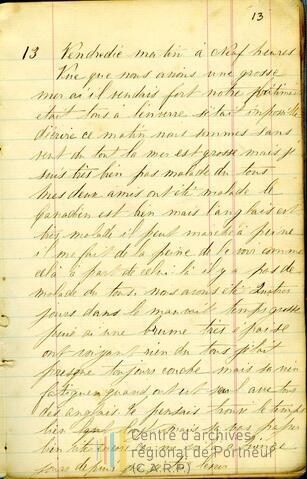 13
13 Vendredie matin à neuf heures
Vue que nous avions une grosse
mer ai il vendais fort notre
etait tous à l'enverse se tait imposible
d'ecrire ce matin nous sommes sans
vent du tout la mer est grosse mais je
suis très bien pas malade du tous
mes deux amis ont été malade le
canadien est bien mais l'anglais est
très malade il peut marché à peine
il me fait de la peine de le voir comme
cela à part de celui la il y a pas de
malade du tous nous avons été quatres
jours dans le mauvait temps grosse
puis ai une brume très épaisse
ont voyait rien du tous j'était
presque toujours couché mais sa rien
fatiguant quand ont est seul avec tous
des anglais je pensais trouvé le temps
bien long mais
bien
jours depuis
Centre d'archives
régional de Portneuf
(C.A.R.P.)